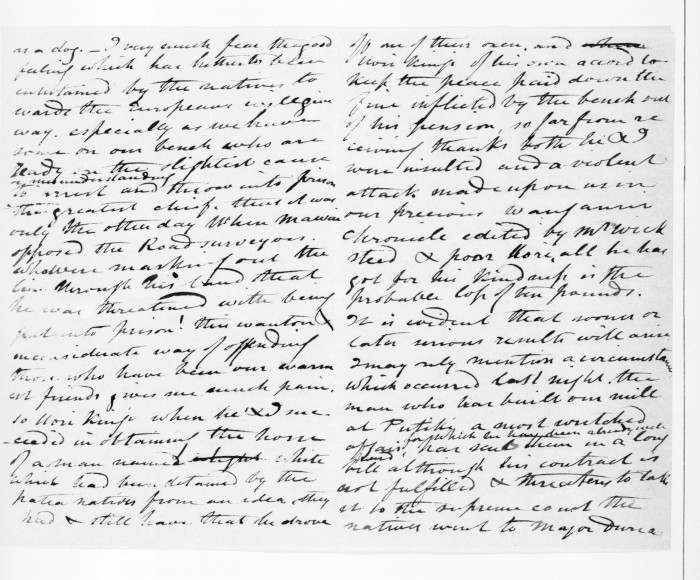 as a dog. – I very much fear the good
feeling which has hitherto been
entertained by the natives to
wards the Europeans will give
way. especially as we have
some on our bench who are
ready on the slightest cause
or misunderstanding
to arrest and throw into prison
the greatest chief. thus it was
only the other day when Mawai
opposed the Road surveyors.
who were marking out the
line through his land that
he was threatened with being
put into prison! this wanton &
inconsiderate way of offending
those who have been our warm
est friends gives me much pain.
so Hori Kingi when he & I suc
-ceeded in obtaining the horse
of a man named white
which had been detained by the
natives from an idea they
had & still have that he drove
off one of their oxen, and
Hori Kingi of his own accord to
keep the peace paid down the
fine inflicted by the bench out
of his pension, so far from re
ceiving thanks both he & I
were insulted and a violent
attack made upon us in
our precious Wanganui
Chronicle edited by Mr Wick
steed & poor Hori, all he has
got for his kindness is the
probable loss of ten pounds.
It is evident that sooner or
later serious results will arise
I may only mention a circumstance
which occurred last night. the
man who has built our mill
at Patiky a most wretched
for which he has been already well
affair, has sent them in a long
bill although his contract is
not fulfilled & threatens to take
it to the supreme court the
natives went to Major Durea